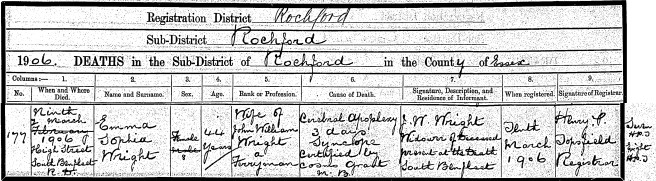 Registration District Rochford
Sub-District Rochford
1906. DEATHS in the Sub-District of Rochford in the County of Essex
Columns:— 1. 2. 3. 4. 5. 6. 7. 8. 9.
No. When and Where Died. Name and Surname. Sex. Age. Rank or Profession. Cause of Death. Signature, Description, and Residence of Informant. When registered. Signature of Registrar
177
Ninth
March
February
1906
High Street
South Benfleet
R.D.
Emma
Sophia
Wright
Female
Male
44
Years
Wife of
John William
Wright
a
Ferryman
Cerebral Apoplexy
3 days
Syncope
Certified by
Grant
M.B.
J.W. Wright
Widower of deceased
present at the death
South Benfleet
March
1906
Henry P.
Topsfield
Registrar